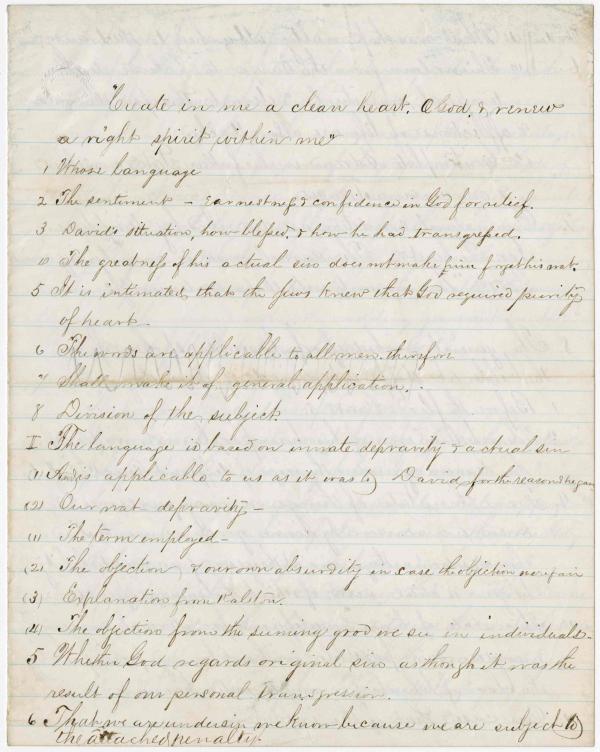 "Create in me a clean heart. O God, & renew
a right spirit within me"
1 Whose language
2 The sentiment - Earnestness & confidence in God for relief.
3 David's situation, how blessed, & how he had transgressed.
10 The greatness of his actual sin does not make him forget his nat.
5 It is intimated that the Jews knew that God required purity
of heart -
6 The words are applicable to all men therefore
7 Shall make it of general application.
8 Division of the subject.
I The language is based on innate depravity & actual sin
(1) And is applicable to us as it was to David, for the reasons
(2) Our nat depravity, -
(1) The term employed -
(2) The objection, & our own absurdity in case the objection
(3) Explanation from Ralston.
(4) The objection from the seeming good we see in individuals -
5 Whether God regards original sin as though it was the
result of our personal transgression.
6 That we are under sin we know because we are subject to
the attached penalty.